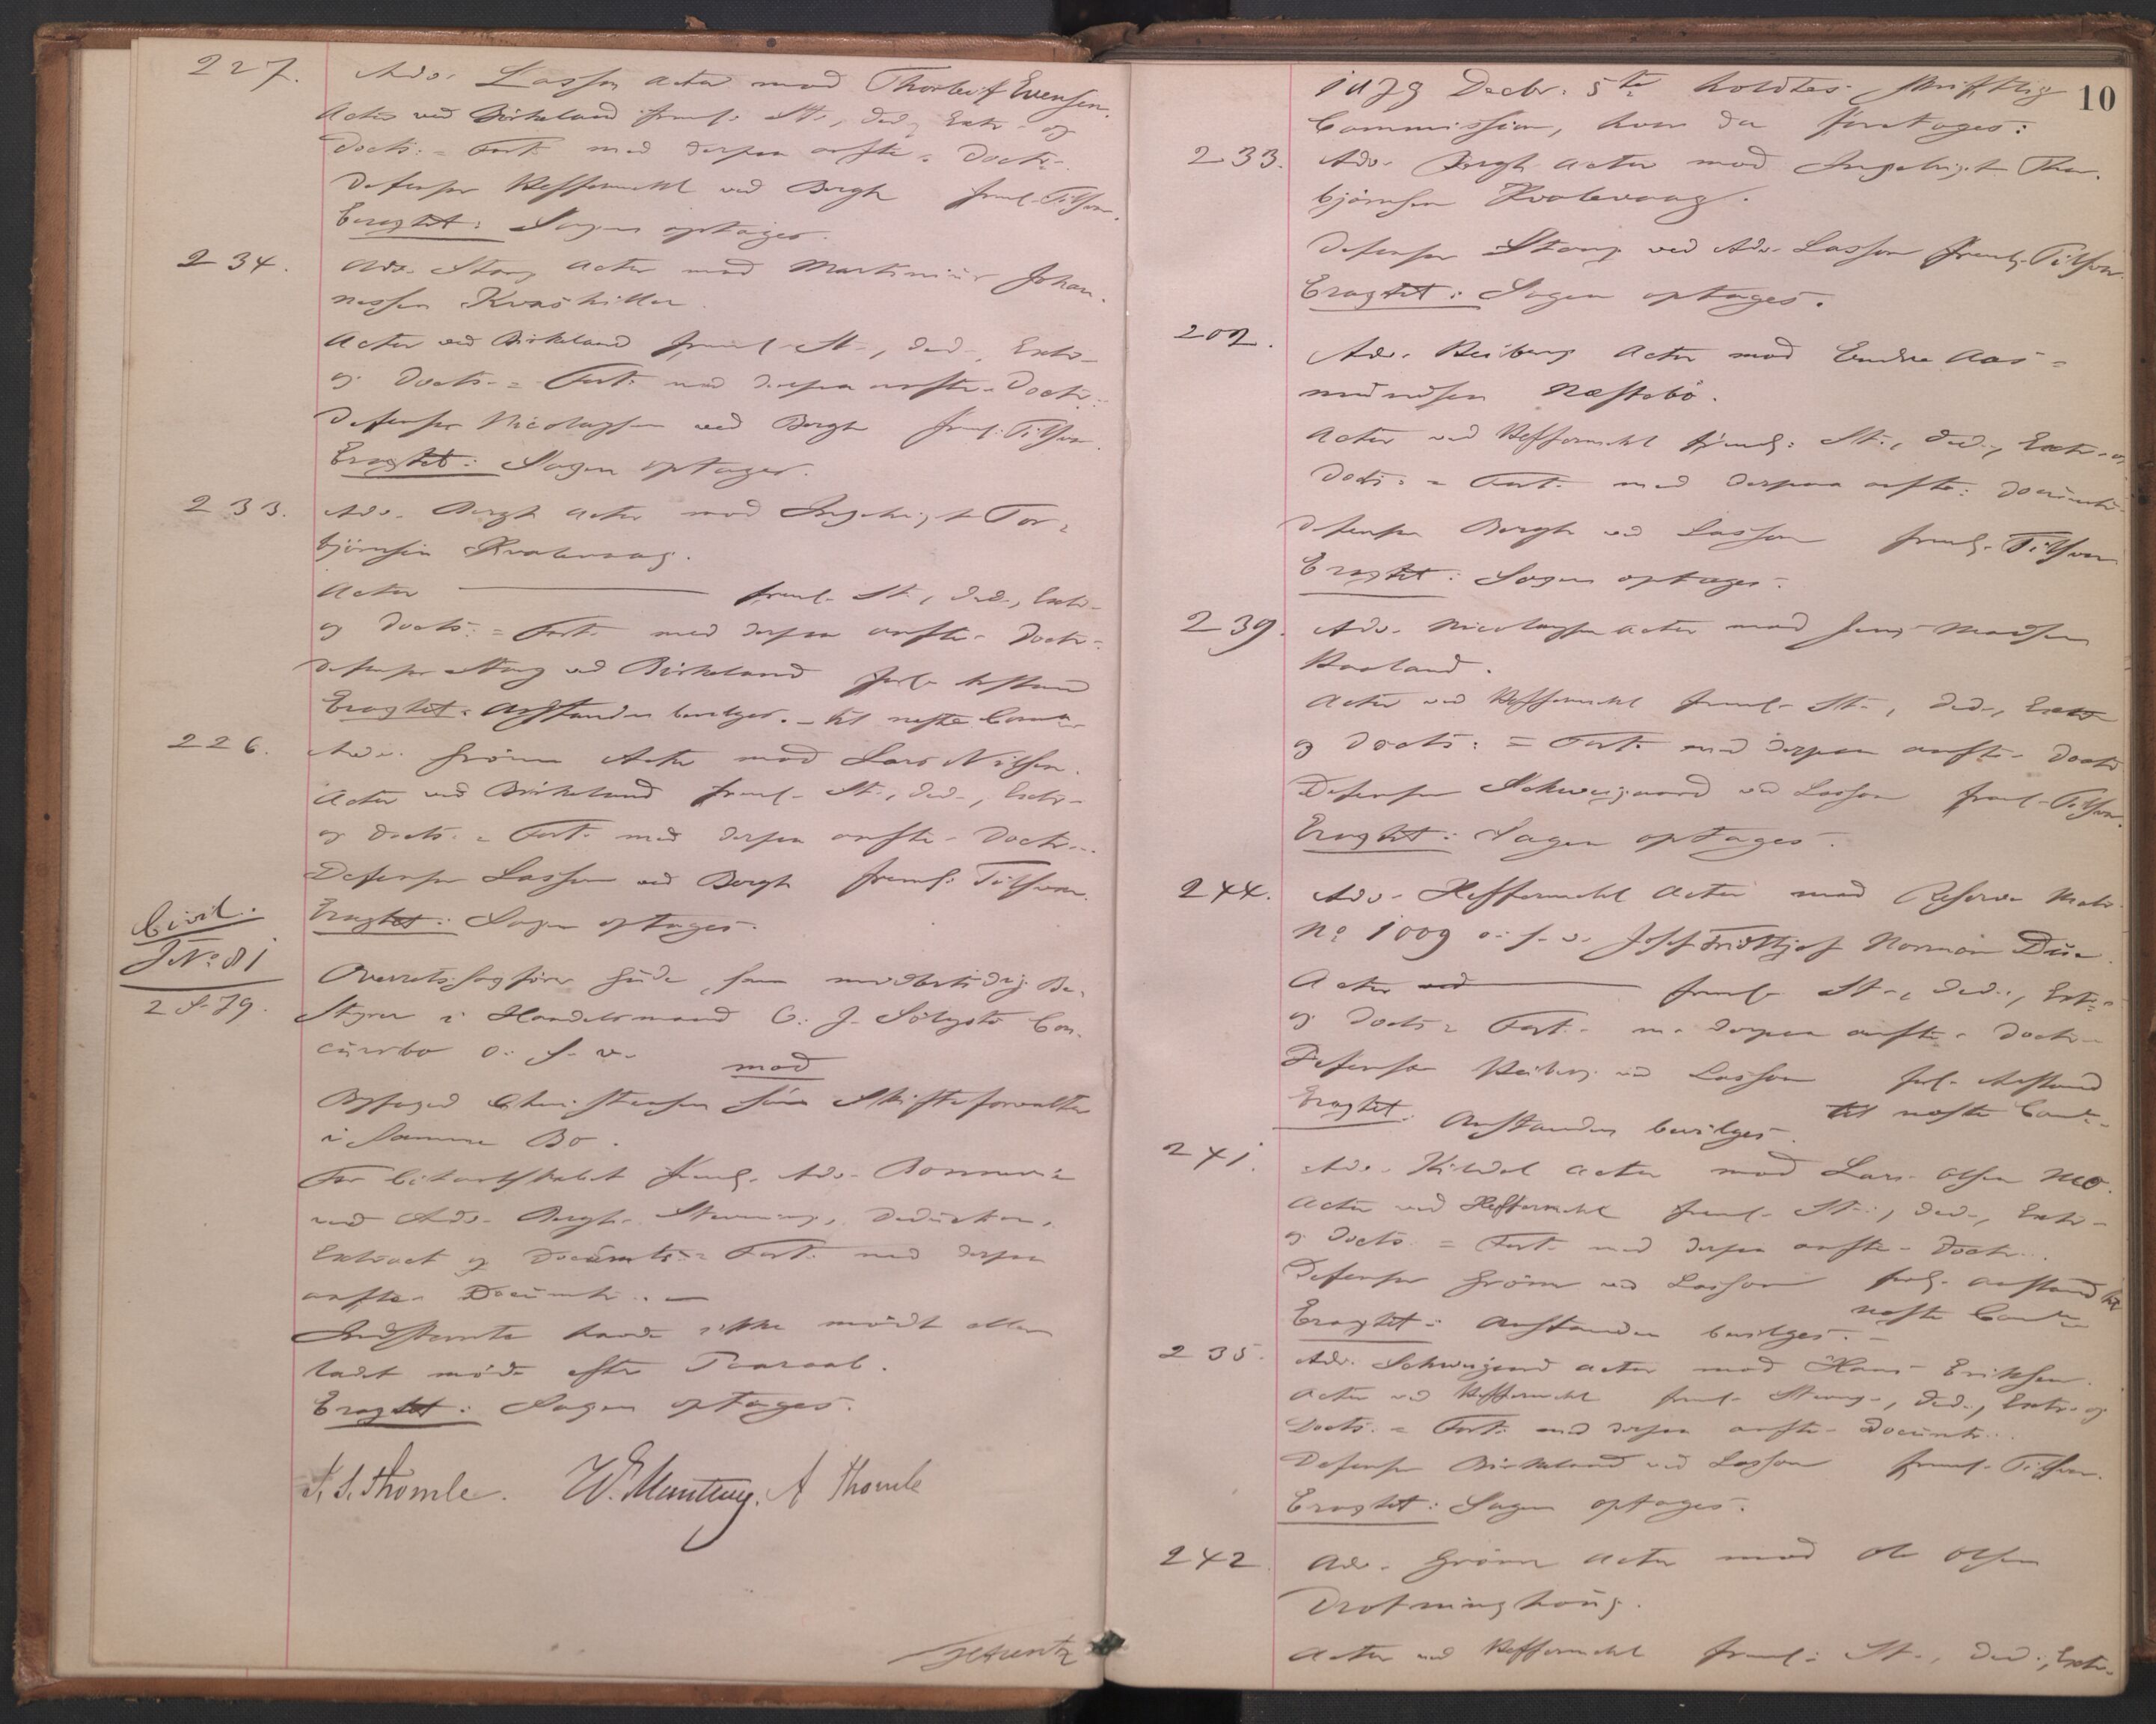 227. Adv. Lasson Actor mod Thorleif Evensen.
Actor ved Birkeland freml. St., Ded., Extr. og
Docts. = Fort. med derpaa anfte. Doctr.
Defensor Heffermehl ved Bergh freml. Tilsvar.
Eragtet: Sagen optages.
234. Adv. Stang Actor mod Martinius Johan-
nessen Kvashiller.
Actor ved Birkeland freml. St., Ded., Extr.
og Docts. = Fort. med derpaa anfte. Doctr.
Defensor Nicolaysen ved Bergh freml. Tilsvar.
Eragtet: Sagen optages.
233. Adv. Bergh Actor mod Ingebrigt Tor=
bjørnsen Kvalevaag.
Actor freml. St., Ded., Extr.
og Docts. = Fort. med derpaa anfte. Doctr.
Defensor Stang ved Birkeland forl. Anstand
Eragtet: Anstanden bevilges. - til næste
226. Adv. Grönn Actor mod Lars Nilsen.
Actor ved Birkeland freml. St., Ded., Extr.
og Docts. = Fort. med derpaa anfte. Doctr.
Defensor Lasson ved Bergh freml. Tilsvar.
Eragtet: Sagen optages.
Civil.
J No 81
2 S. 79.
Overretssagfører Gude, som midlertidig Be-
styrer i Handelsmand C. J. Con-
cursbo o. s. v.
mod
Byfoged Christensen som Skifteforvalter
i samme Bo.
For Citantskabet freml. Adv. Bonnevie
ved Adv. Bergh Stevning, Deduction,
Extract og Documts. = Fort. med derpaa
anfte. Documtr. -
Indstevnte havde ikke mødt eller
ladet møde efter Paaraab.
Eragtet: Sagen optages.
I. S. Thomle. W. Munting. A Thomle
1879 Decbr. 5te holdtes skriftlig 10
Commission, hvor da foretoges:
233. Adv. Bergh Actor mod Ingebrigt Thor-
bjørnsen Kvalevaag.
Defensor Stang ved Adv. Lasson freml. Tilsvar.
Eragtet: Sagen optages.
202. Adv. Heiberg Actor mod Endre Aas=
mundsen Næstebö.
Actor ved Heffermehl freml. St., Ded., Extr. og
Docts. = Fort. med derpaa anfte. Documtr.
Defensor Bergh ved Lasson freml. Tilsvar
Eragtet: Sagen optages.
239. Adv. Nicolaysen Actor mod Jens Madsen
Haaland.
Actor ved Heffermehl freml. St., Ded., Extr.
og Docts. = Fort. med derpaa anfte. Doctr
Defensor Schweigaard ved Lasson freml. Tilsvar.
Eragtet: Sagen optages.
244. Adv. Heffermehl Actor mod Reserve Matr.
No 1009 o. s. v. Josef Fridthjof Norman Due.
Actor ved freml. St., Ded., Extr.
og Docts = Fort. m. derpaa anfte. Doctr.
Defensor Heiberg ved Lasson forl. Anstand
Eragtet: Anstanden bevilges. til næste
241. Adv. Kildal Actor mod Lars Olsen Mo.
Actor ved Heffermehl freml. St., Ded., Extr.
og Docts. = Fort. med derpaa anfte. Doctr.
Defensor Grönn ved Lasson forl. Anstand til
Eragtet: Anstanden bevilges. næste
235. Adv. Schweigaard Actor mod Hans Eriksen.
Actor ved Heffermehl freml. Stevng., Ded., Extr. og
Docts. = Fort. med derpaa anfte. Documtr.
Defensor Birkeland ved Lasson freml. Tilsvar.
Eragtet: Sagen optages.
242 Adv. Grönn Actor mod Ole Olsen
Drotninghaug.
Actor ved Heffermehl freml. St., Ded., Extr.